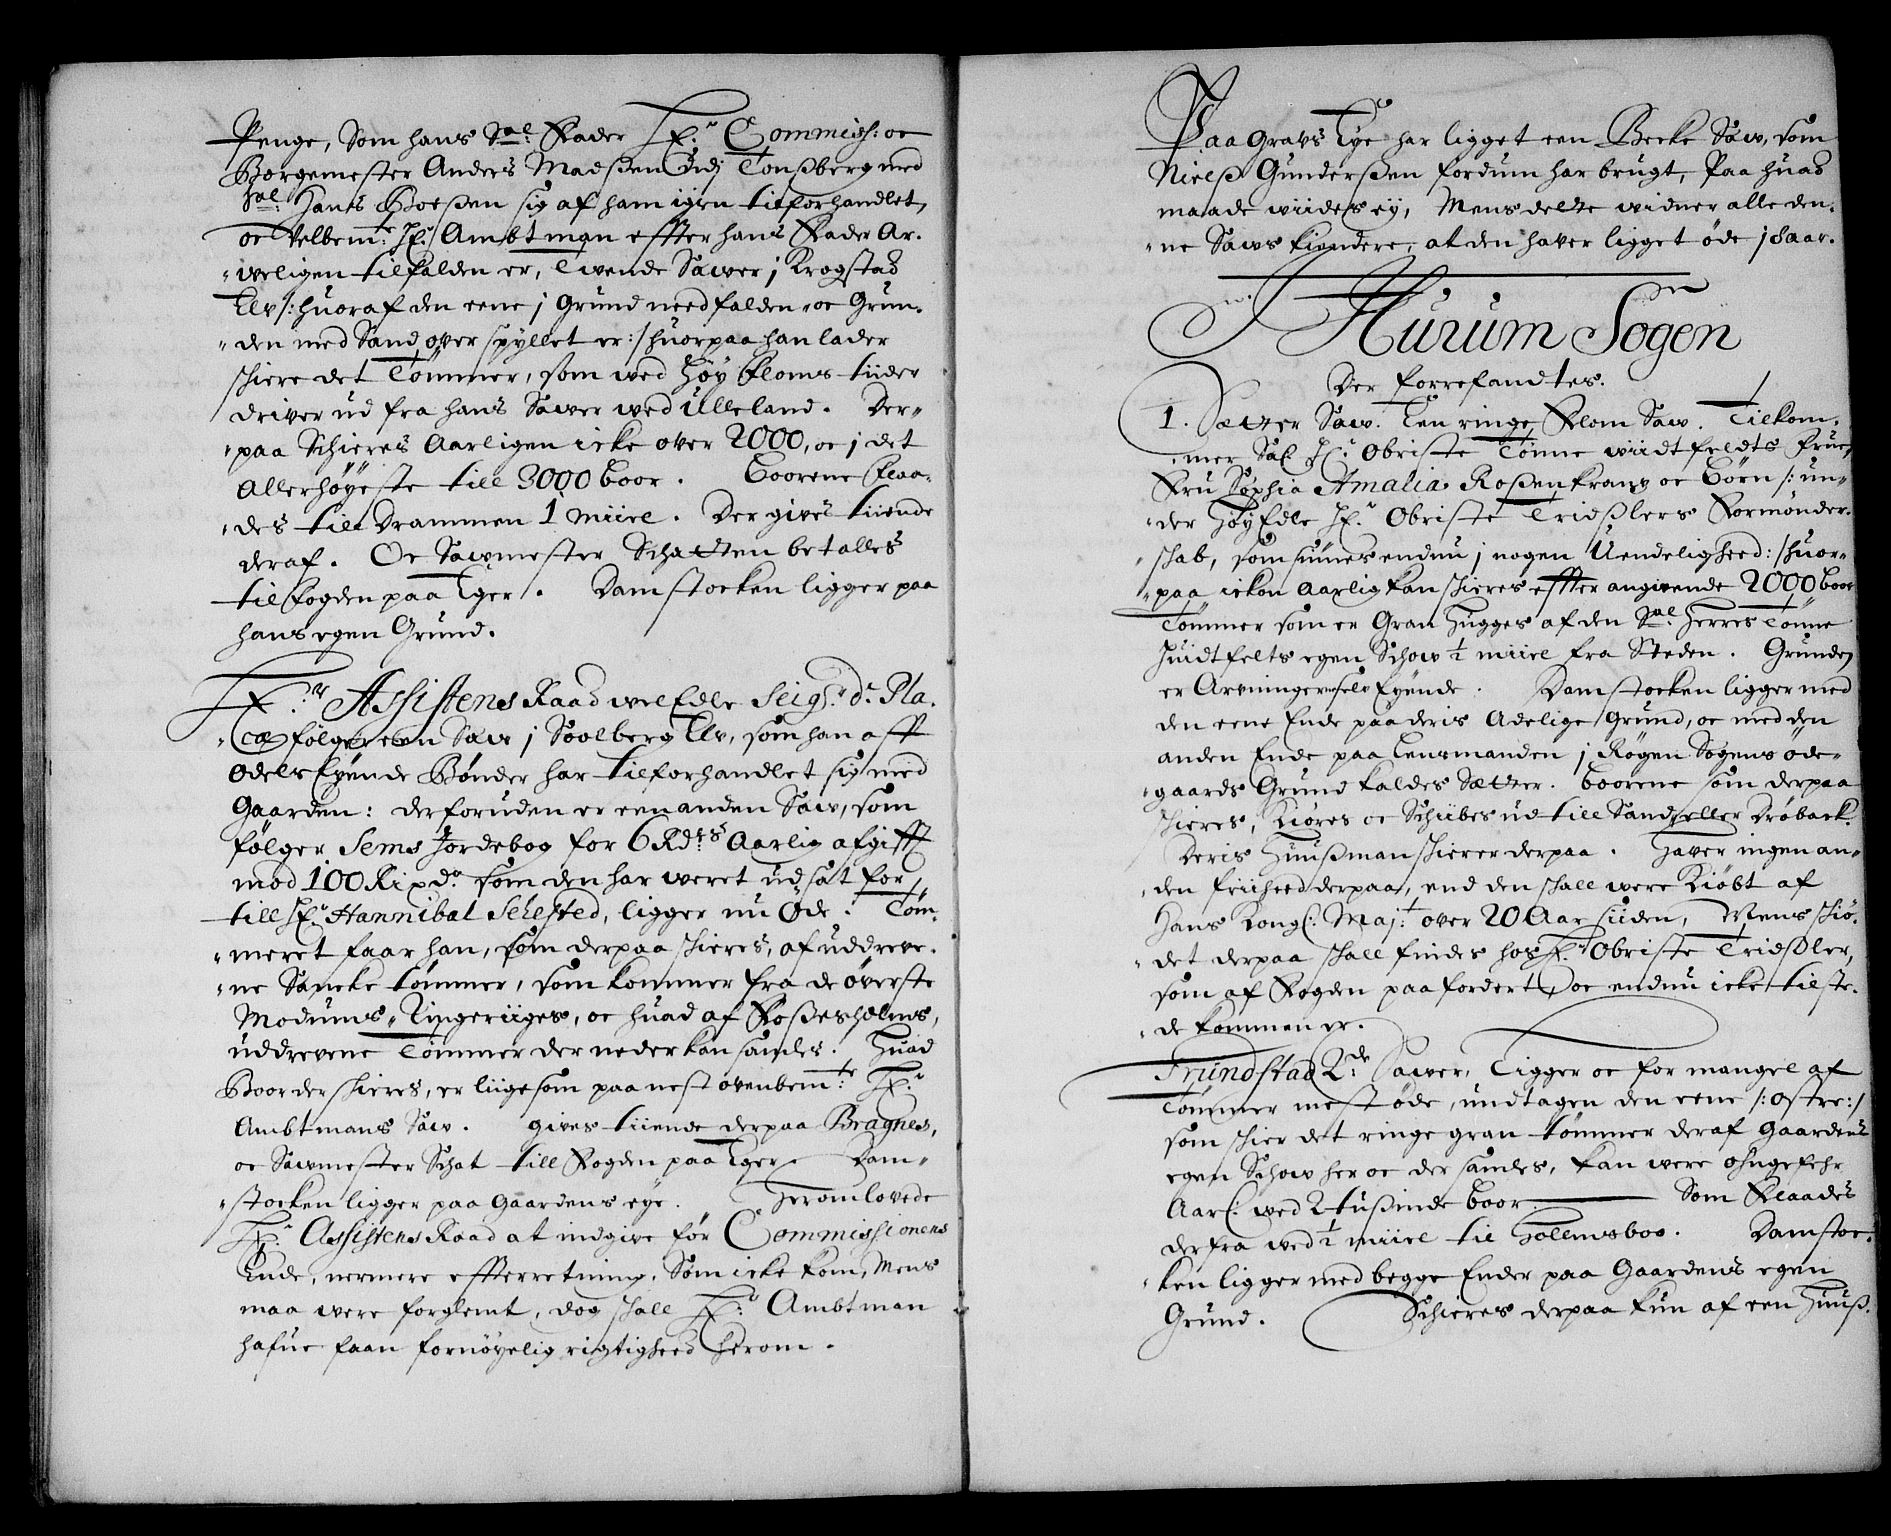 Penge, Som hans Sal: Fader Hr. Commiss: oc
Borgemester Anders Madsen udj Tonsberg med
Sal: Hans Boesen sig af ham igien tilforhandlet,
oc Velbemte: Hr. Ambtman effter hans Fader Ar-
"veligen tilfalden er, Tvende Sawer j Krogstad
Elv /: huoraf den eene j Grund needfalden oc Grun-
"den med Sand over spyllet er :/ huorpaa han lader
schiere det Tømmer, som ved Høy floms tiider
driver ud fra hans Sawer wed Ulleland. Der-
"paa Schieres Aarligen icke over 2000, oc j det
Allerhøyeste till 3000 boor. Boorene flaa-
"des till Drammen 1 miile. Der gives tiiende
deraf. Oc Sawmester Schatten betalles
til fogden paa Eger. Damstocken ligger paa
hans egen Grund.
Hr. Assistens Raad wel Edle Seigr. d. Pla-
"cæ følger een Saw j Soolberg Elv, som han aff
Odels Eyende Bønder har tilforhandlet sig med
Gaarden: derforuden er een anden Saw, som
følger Sems Jordebog for 6 Rdrs Aarlig afgifft
mod 100 Ri xd. som den har weret udsat for
till Hr. Hannibal Sehested, ligger nu Øde. Tøm-
"meret faar han, som derpaa schieres, af uddreve-
"ne Sancke tømmer, som kommer fra de øverste
Modums, Ringeriiges, oc huad af Fossesholms,
uddrevene Tømmer der neder kan samles. Huad
Boor der schieres, er liigesom paa nest ovenbemte: Hr.
Ambtmans Saw. gives tiiende derpaa Bragnes,
oc Sawmester Schat till Fogden paa Eger. Dam-
"stocken ligger paa Gaardens eye. Herom lovede
Hr. Assistens Raad at indgive før Commissionens
Ende, nermere effterretning, Som icke kom, Mens
maa were forglemt, dog schall Hr. Ambtman
hafue faan fornøyelig rigtigheed herom.
Paa Gravs Eye har ligget een Becke Saw, som
Niels Gundersen fordum har brugt, Paa huad
maade wiides ey, Mens dette widner alle den-
"ne Saws kiendere, at den haver ligget øde j 8 aar.
I Hurum Sogen
Der forrefandtes.
1. Sætter Saw. Een ringe Flom Saw. Tilkom-
"mer Sal Hr. Obriste Tønne wiidtfeldts frue,
Fru Sophia Amalia Rosenkrantz oc børn /: un-
"der Høy Edle Hr. Obriste Tridslers Formønder-
"schab, som siunes endnu j nogen Uendeligheed :/ huor-
"paa ickon Aarlig kan schieres effter angivende 2000 boor
Tømmer som er Gran Hugges af den Sal: Herres Tønne
Huidtfelts egen Schow ½ miile fra Steden. Grunden
er Arvingerne selv Eyende. Damstocken ligger med
den eene Ende paa deris Adelige Grund, oc med den
anden Ende paa Lensmanden j Røgen Sogens øde-
"gaards Grund kaldes Sætter. Boorene som derpaa
schieres, Kiøres oc Schibes ud till Sand eller Drøback.
Deris Huusman schierer derpaa. Haver ingen an-
"den friiheed derpaa, end den schall were Kiøbt af
Hans Kongl: Maj:t over 20 Aar siiden, Mens schiø-
"det derpaa schall findes hos Hr. Obriste Tridsler,
som af Fogden paafordert oc endnu icke tilste-
"de kommen er.
Trundstad 2de Sawer, Ligger oc for mangel af
Tømmer mest øde, undtagen den eene /: Ostre :/
som schier det ringe gran tømmer deraf Gaardens
egen Schow her oc der samles, kan were ohngefehr
Aarl. wed 2 tusinde boor Som Flaades
derfra wed ½ miiel til Hollemsboo. Damstoc-
"ken ligger med begge Ender paa Gaardens egen
Grund. Schieres derpaa kun af een Huus-